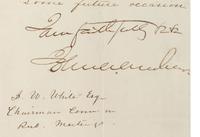 some future occasion
I am faithfully &c &c
A. W. White Esq
Chairman Com. on
Pub. Meetings